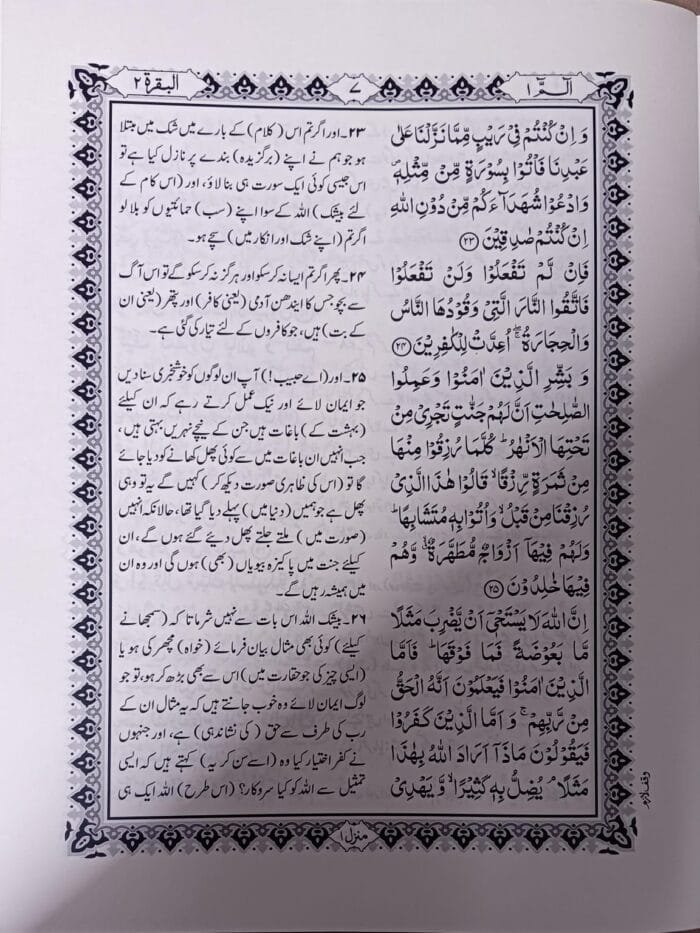 الٓمّٓ ١
٧
البقرة ٢
وَ اِنْ كُنْتُمْ فِیْ رَیْبٍ مِّمَّا نَزَّلْنَا عَلٰى
عَبْدِنَا فَاْتُوْا بِسُوْرَةٍ مِّنْ مِّثْلِهٖ۪
وَ ادْعُوْا شُهَدَآءَكُمْ مِّنْ دُوْنِ اللّٰهِ
اِنْ كُنْتُمْ صٰدِقِیْنَ ﴿٢٣﴾
فَاِنْ لَّمْ تَفْعَلُوْا وَلَنْ تَفْعَلُوْا
فَاتَّقُوا النَّارَ الَّتِیْ وَقُوْدُهَا النَّاسُ
وَالْحِجَارَةُ ۖۚ اُعِدَّتْ لِلْكٰفِرِیْنَ ﴿٢٤﴾
وَ بَشِّرِ الَّذِیْنَ اٰمَنُوْا وَعَمِلُوا
الصّٰلِحٰتِ اَنَّ لَهُمْ جَنّٰتٍ تَجْرِیْ مِنْ
تَحْتِهَا الْاَنْهٰرُ ؕ كُلَّمَا رُزِقُوْا مِنْهَا
مِنْ ثَمَرَةٍ رِّزْقًا ۙ قَالُوْا هٰذَا الَّذِیْ
رُزِقْنَا مِنْ قَبْلُ ۙ وَ اُتُوْا بِهٖ مُتَشَابِهًا ؕ
وَلَهُمْ فِیْهَاۤ اَزْوَاجٌ مُّطَهَّرَةٌ ۙۗ وَّهُمْ
فِیْهَا خٰلِدُوْنَ ﴿٢٥﴾
اِنَّ اللّٰهَ لَا یَسْتَحْیٖۤ اَنْ یَّضْرِبَ مَثَلًا
مَّا بَعُوْضَةً فَمَا فَوْقَهَا ؕ فَاَمَّا
الَّذِیْنَ اٰمَنُوْا فَیَعْلَمُوْنَ اَنَّهُ الْحَقُّ
مِنْ رَّبِّهِمْ ۚ وَ اَمَّا الَّذِیْنَ كَفَرُوْا
فَیَقُوْلُوْنَ مَاذَاۤ اَرَادَ اللّٰهُ بِهٰذَا
مَثَلًا ۘ یُضِلُّ بِهٖ كَثِیْرًا ۙ وَّ یَهْدِیْ
وقف لازم
۲۳۔ اور اگر تم اس (کلام) کے بارے میں شک میں مبتلا
ہو جو ہم نے اپنے (برگزیدہ) بندے پر نازل کیا ہے تو
اس جیسی کوئی ایک سورت ہی بنا لاؤ، اور (اس کام کے
لئے بیشک) اللہ کے سوا اپنے (سب) حمائتیوں کو بلا لو
اگر تم (اپنے شک اور انکار میں) سچے ہو۔
۲۴۔ پھر اگر تم ایسا نہ کر سکو اور ہرگز نہ کر سکو گے تو اس آگ
سے بچو جس کا ایندھن آدمی (یعنی کافر) اور پتھر (یعنی ان
کے بت) ہیں، جو کافروں کے لئے تیار کی گئی ہے۔
۲۵۔ اور (اے حبیب!) آپ ان لوگوں کو خوشخبری سنا دیں
جو ایمان لائے اور نیک عمل کرتے رہے کہ ان کیلئے
(بہشت کے) باغات ہیں جن کے نیچے نہریں بہتی ہیں،
جب انہیں ان باغات میں سے کوئی پھل کھانے کو دیا جائے
گا تو (اس کی ظاہری صورت دیکھ کر) کہیں گے یہ تو وہی
پھل ہے جو ہمیں (دنیا میں) پہلے دیا گیا تھا، حالانکہ انہیں
(صورت میں) ملتے جلتے پھل دیئے گئے ہوں گے، ان
کیلئے جنت میں پاکیزہ بیویاں (بھی) ہوں گی اور وہ ان
میں ہمیشہ رہیں گے۔
۲۶۔ بیشک اللہ اس بات سے نہیں شرماتا کہ (سمجھانے
کیلئے) کوئی بھی مثال بیان فرمائے (خواہ) مچھر کی ہو یا
(ایسی چیز کی جو حقارت میں) اس سے بھی بڑھ کر ہو، تو جو
لوگ ایمان لائے وہ خوب جانتے ہیں کہ یہ مثال ان کے
رب کی طرف سے حق (کی نشاندہی) ہے، اور جنہوں
نے کفر اختیار کیا وہ (اسے سن کر یہ) کہتے ہیں کہ ایسی
تمثیل سے اللہ کو کیا سروکار؟ (اس طرح) اللہ ایک ہی
منزل ١